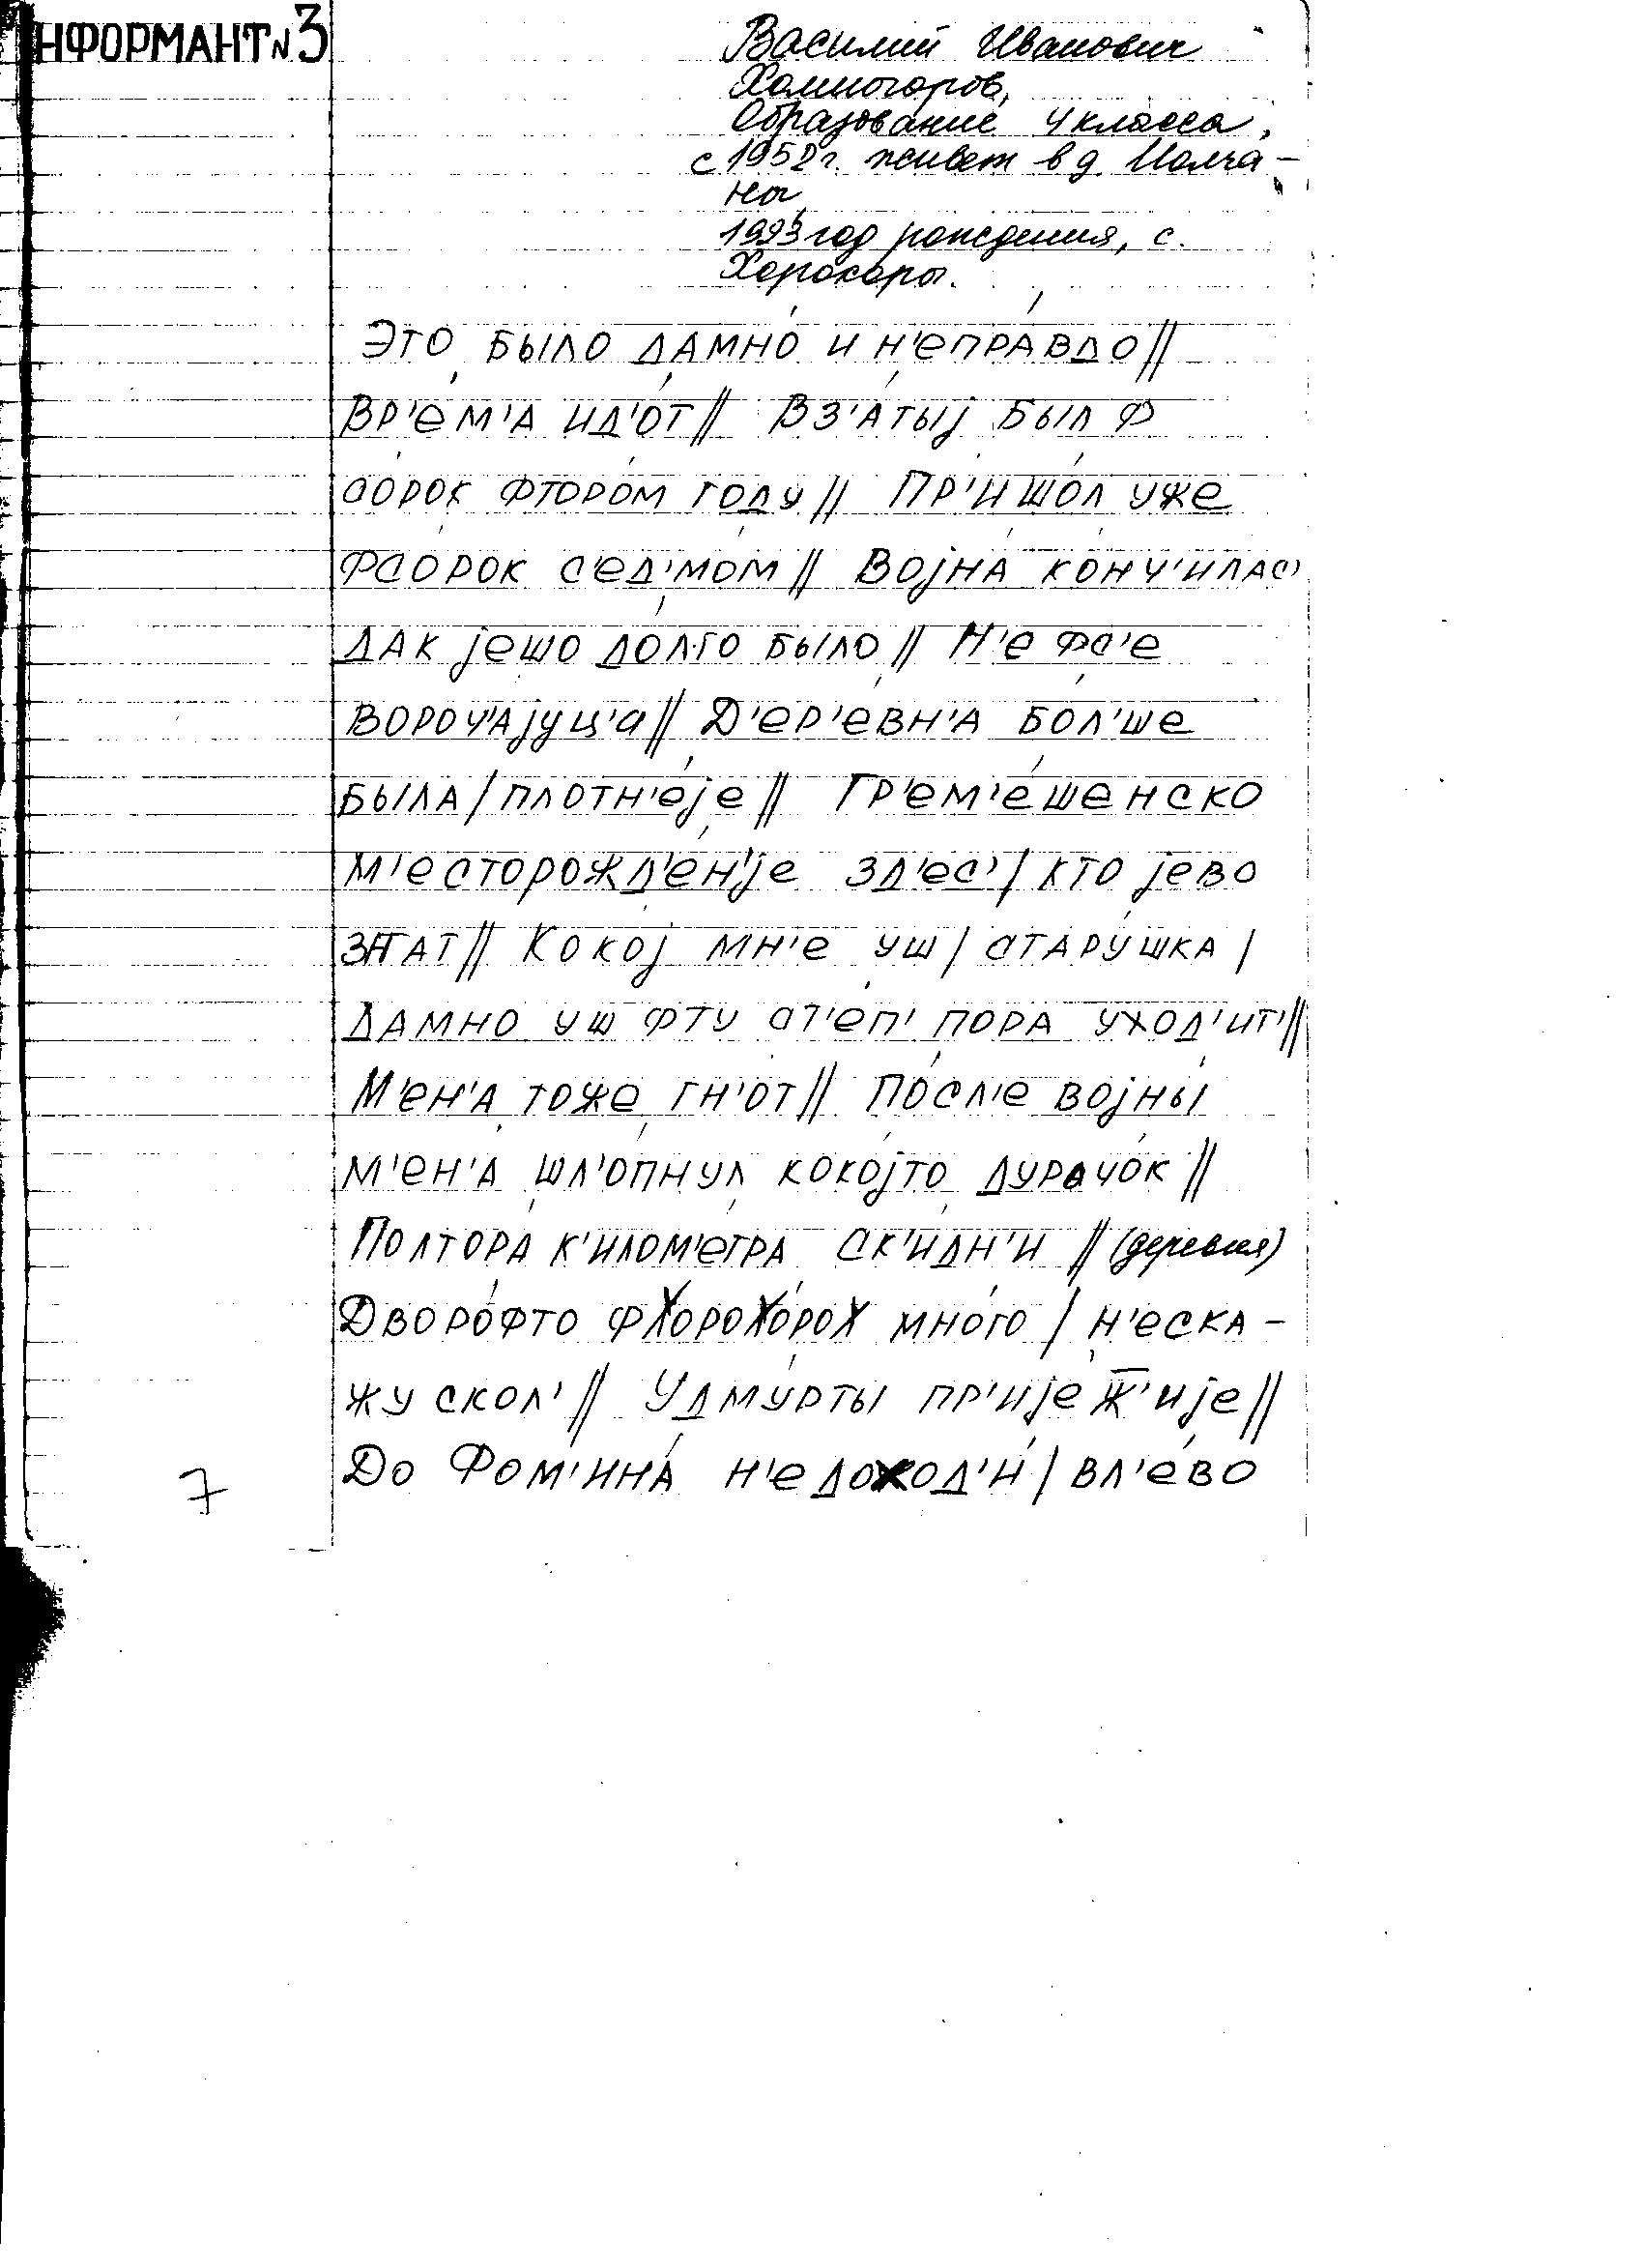 ИНФОРМАНТ N 3
Василий Иванович
Холмогоров,
Образование 4 класса,
с 1952 г. живет в д. Молча-
ны
1923 год рождения, с.
Хорохоры.
Это было дамно́ и н'епра́вдо //
Вр'е́м'а ид'о́т // Вз'а́тыj был ф
сорок фторо́м году // Пр'ишо́л уже
фсо́рок с'ед'мо́м // Воjна́ ко́нч'илас'
дак jешо до́лго было // Н'е фс'е
вороч'аjуц'а // Д'ер'е́вн'а бо́л'ше
была / плотн'е́jе // Гр'ем'е́шенско
м'есторожд'е́н'jе зд'ес' / кто jево
знат // Кокоj мн'е уш / стару́шка /
дамно уш фту ст'еп' пора ухо́д'ит' //
М'ен'а́ тоже гн'от // По́сл'е воjны́
м'ен'а́ шл'о́пнул кокоjто дурачо́к //
Полтора́ к'илом'е́тра ск'и́дн'и // (деревня)
Дворо́фто фХороХо́роХ мно́го / н'еска-
жу скол' // Удму́рты пр'иjе́ж̅'иjе //
До Фом'ина́ н'едоход'и́ / вл'е́во
7